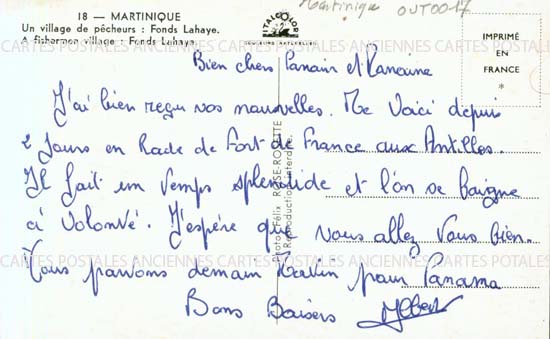 Martinique OUT0017
18 — MARTINIQUE
Un village de pêcheurs : Fonds Lahaye.
A fishermen village : Fonds Lahaye.
ITALCOLOR
IMPRIMÉ
EN
FRANCE
*
Bien chers Parrain et Marraine
J'ai bien reçu vos nouvelles. Me voici depuis
2 jours en Rade de Fort-de-France aux Antilles.
Il fait un temps splendide et l'on se baigne
à volonté. J'espère que vous allez vous bien.
Nous partons demain matin pour Panama
Bons Baisers Albert
Photo Félix ROSE-ROSETTE
Reproduction interdite.
CARTES POSTALES ANCIENNES CARTES POSTALES